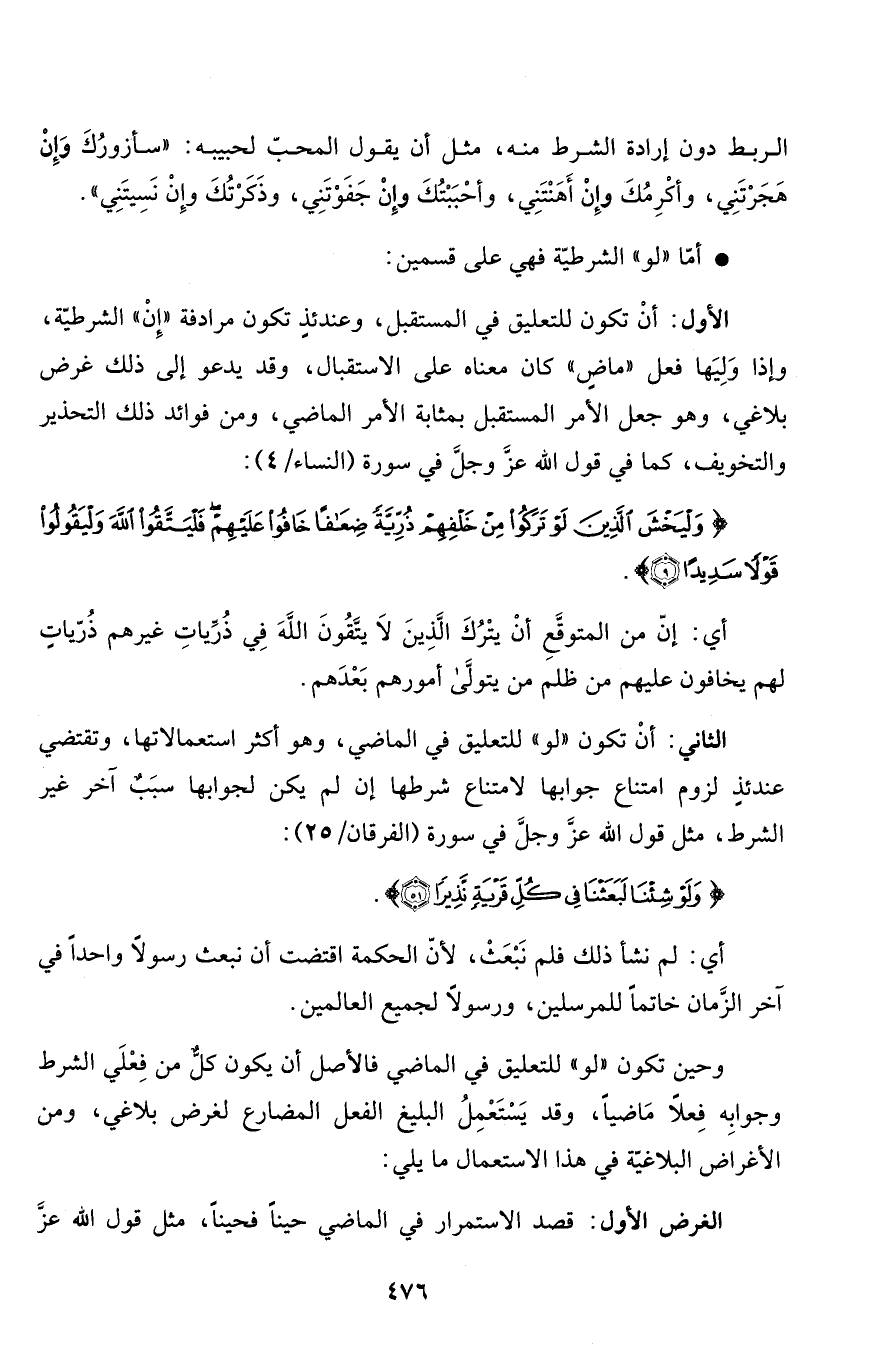 الـربـط دون إرادة الشـرط منـه، مثـل أن يقـول المحـبّ لحبيبـه: «سـأزورُكَ وَإِنْ
هَجَرْتَنِي، وأكْرِمُكَ وإِنْ أَهَنْتَنِي، وأحْبَبْتُكَ وإِنْ جَفَوْتَنِي، وذَكَرْتُكَ وإِنْ نَسِيتَنِي».
● أمّا «لو» الشرطيّة فهي على قسمين:
الأول: أنْ تكون للتعليق في المستقبل، وعندئذٍ تكون مرادفة «إِنْ» الشرطيّة،
وإذا وَلِيَها فعل «ماضٍ» كان معناه على الاستقبال، وقد يدعو إلى ذلك غرض
بلاغي، وهو جعل الأمر المستقبل بمثابة الأمر الماضي، ومن فوائد ذلك التحذير
والتخويف، كما في قول الله عزَّ وجلَّ في سورة (النساء/ ٤):
﴿ وَلْيَخْشَ ٱلَّذِينَ لَوْ تَرَكُوا۟ مِنْ خَلْفِهِمْ ذُرِّيَّةً ضِعَٰفًا خَافُوا۟ عَلَيْهِمْ ۖ فَلْيَتَّقُوا۟ ٱللَّهَ وَلْيَقُولُوا۟
قَوْلًا سَدِيدًا ٩﴾.
أي: إنّ من المتوقَّعِ أنْ يتْرُكَ الَّذِينَ لاَ يتَّقُونَ اللَّهَ فِي ذُرِّياتِ غيرهم ذُرّياتٍ
لهم يخافون عليهم من ظلم من يتولَّىٰ أمورهم بَعْدَهم.
الثاني: أنْ تكون «لو» للتعليق في الماضي، وهو أكثر استعمالاتها، وتقتضي
عندئذٍ لزوم امتناع جوابها لامتناع شرطها إن لم يكن لجوابها سبَبٌ آخر غير
الشرط، مثل قول الله عزَّ وجلَّ في سورة (الفرقان/ ٢٥):
﴿ وَلَوْ شِئْنَا لَبَعَثْنَا فِى كُلِّ قَرْيَةٍ نَّذِيرًا ٥١﴾.
أي: لم نشأ ذلك فلم نَبْعَثْ، لأنّ الحكمة اقتضت أن نبعث رسولاً واحداً في
آخر الزَّمان خاتماً للمرسلين، ورسولاً لجميع العالمين.
وحين تكون «لو» للتعليق في الماضي فالأصل أن يكون كلٌّ من فِعْلَي الشرط
وجوابِه فِعلاً مَاضياً، وقد يَسْتَعْمِلُ البليغ الفعل المضارع لغرض بلاغي، ومن
الأغراض البلاغيّة في هذا الاستعمال ما يلي:
الغرض الأول: قصد الاستمرار في الماضي حيناً فحيناً، مثل قول الله عزَّ
٤٧٦